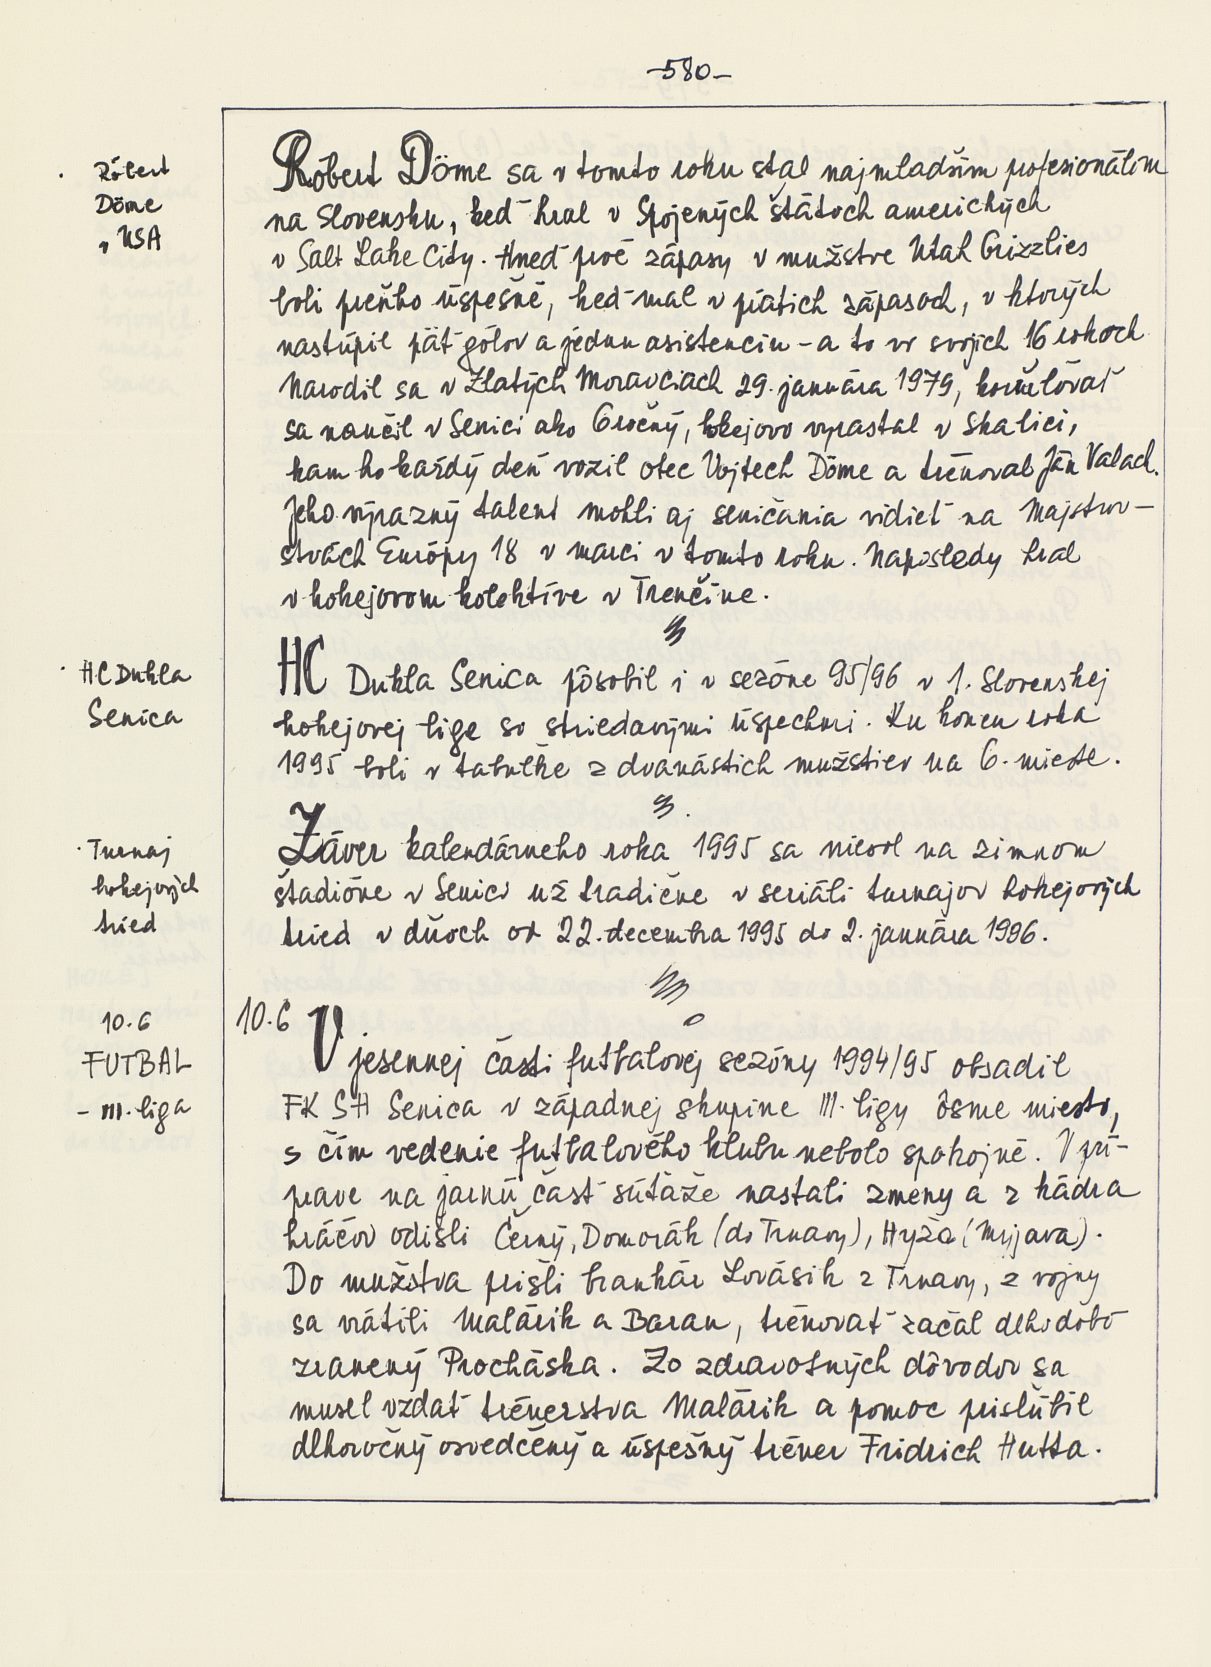 -580-
Róbert
Döme
v USA
Róbert Döme sa v tomto roku stal najmladším profesionálom
na Slovensku, keď hral v Spojených štátoch amerických
v Salt Lake City. Hneď prvé zápasy v mužstve Utah Grizzlies
boli preňho úspešné, keď mal v piatich zápasoch, v ktorých
nastúpil päť gólov a jednu asistenciu - a to vo svojich 16 rokoch
Narodil sa v Zlatých Moravciach 29. januára 1979, korčuľovať
sa naučil v Senici ako 6 ročný, hokejovo vyrastal v Skalici,
kam ho každý deň vozil otec Vojtech Döme a trénoval Ján Valach.
Jeho výrazný talent mohli aj seničania vidieť na Majstrov-
stvách Európy 18 v marci v tomto roku. Naposledy hral
v hokejovom kolektíve v Trenčíne.
HC Dukla
Senica
HC Dukla Senica pôsobil i v sezóne 95/96 v 1. Slovenskej
hokejovej lige so striedavými úspechmi. Ku koncu roka
1995 boli v tabuľke z dvanástich mužstiev na 6. mieste.
Turnaj
hokejových
tried
Záver kalendárneho roka 1995 sa niesol na zimnom
štadióne v Senici už tradične v seriáli turnajov hokejových
tried v dňoch od 22. decembra 1995 do 2. januára 1996.
10.6
FUTBAL
- III. liga
10.6 V jesennej časti futbalovej sezóny 1994/95 obsadil
FK SH Senica v západnej skupine III. ligy ôsme miesto,
s čím vedenie futbalového klubu nebolo spokojné. V prí-
prave na jarnú časť súťaže nastali zmeny a z kádra
hráčov odišli Černý, Domorák (do Trnavy), Hyža (Myjava).
Do mužstva prišli brankár Lovásik z Trnavy, z vojny
sa vrátili Malárik a Baran, trénovať začal dlhodobo
zranený Procháska. Zo zdravotných dôvodov sa
musel vzdať trénerstva Malárik a pomoc prisľúbil
dlhoročný osvedčený a úspešný tréner Fridrich Hutta.